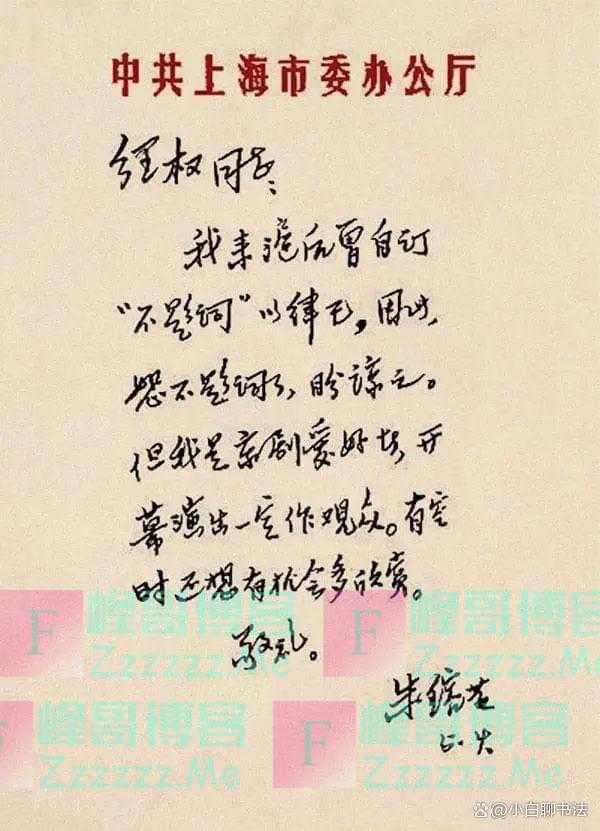 中共上海市委办公厅
经权同志:
我来沪后曾自订
“不题词”以律己,因此,
恕不题词了,盼谅之。
但我是京剧爱好者,开
幕演出一定作观众。有空
时还想有机会多欣赏。
敬礼。
朱镕基
F 峰哥博客 Zzzzzz.Me
F 峰哥博客 Zzzzzz.Me
F 峰哥博客 Zzzzzz.Me
F 峰哥博客 Zzzzzz.Me
@小白聊书法